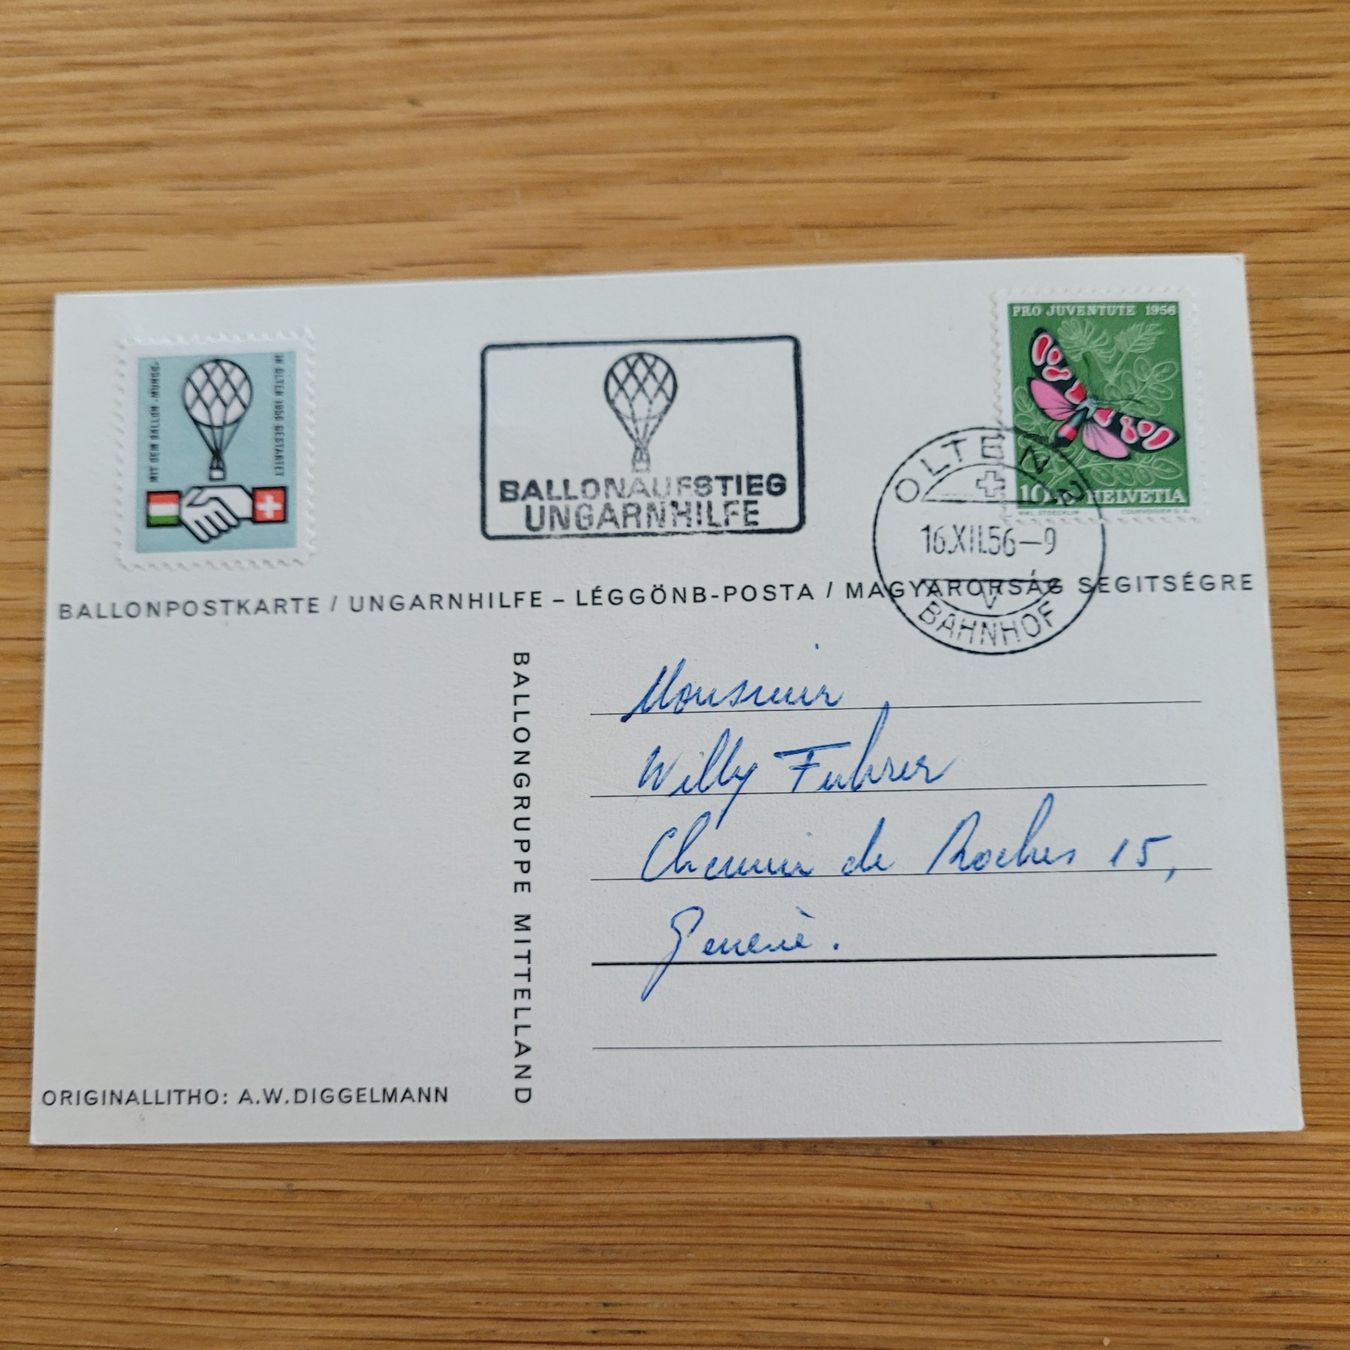 MIT DEM BALLON «MUNGG»
IN OLTEN 1956 GESTARTET
BALLONAUFSTIEG
UNGARNHILFE
PRO JUVENTUTE 1956
10 HELVETIA
NIKL. STOECKLIN COURVOISIER S.A.
OLTEN 2
16.XII.56–9
V
BAHNHOF
BALLONPOSTKARTE / UNGARNHILFE – LÉGGÖNB-POSTA / MAGYARORSÁG SEGITSÉGRE
BALLONGRUPPE MITTELLAND
Monsieur
Willy Fuhrer
Chemin de Roches 15,
Genève.
ORIGINALLITHO: A.W.DIGGELMANN